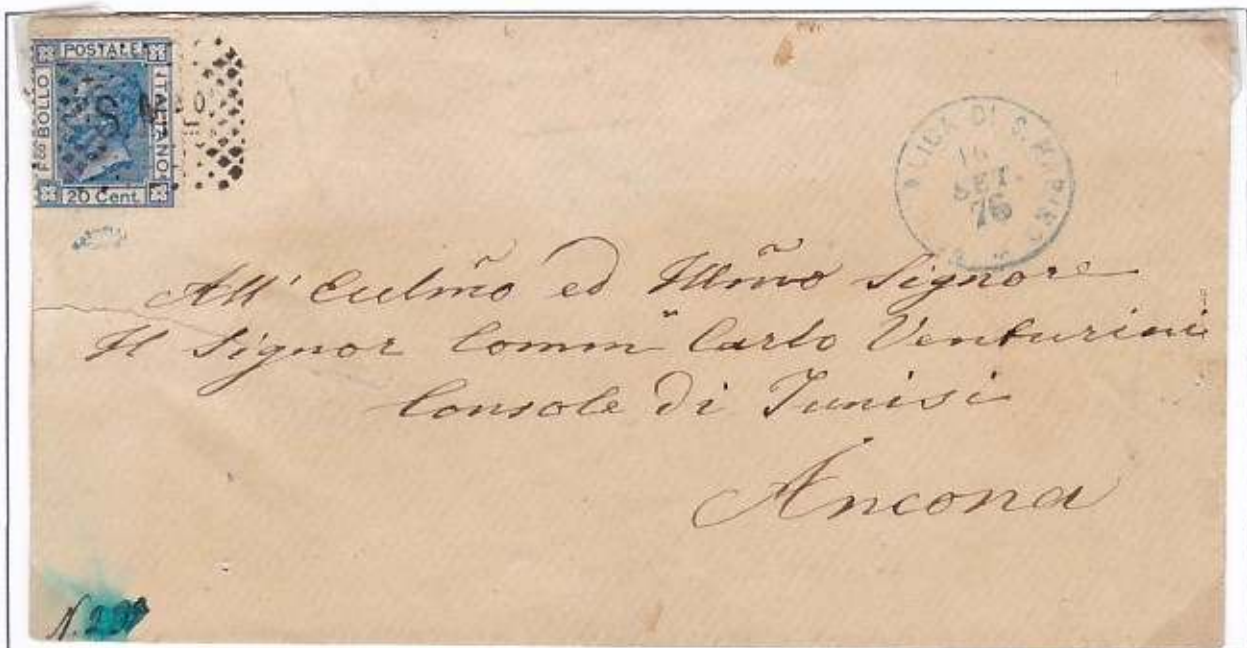 POSTALE
Fco BOLLO
ITALIANO
20 Cent.
DI S. MARINO
16
SET.
76
All' Eccelmo ed Illmo Signore
Il Signor Comm Carlo Venturini
Console di Tunisi
Ancona